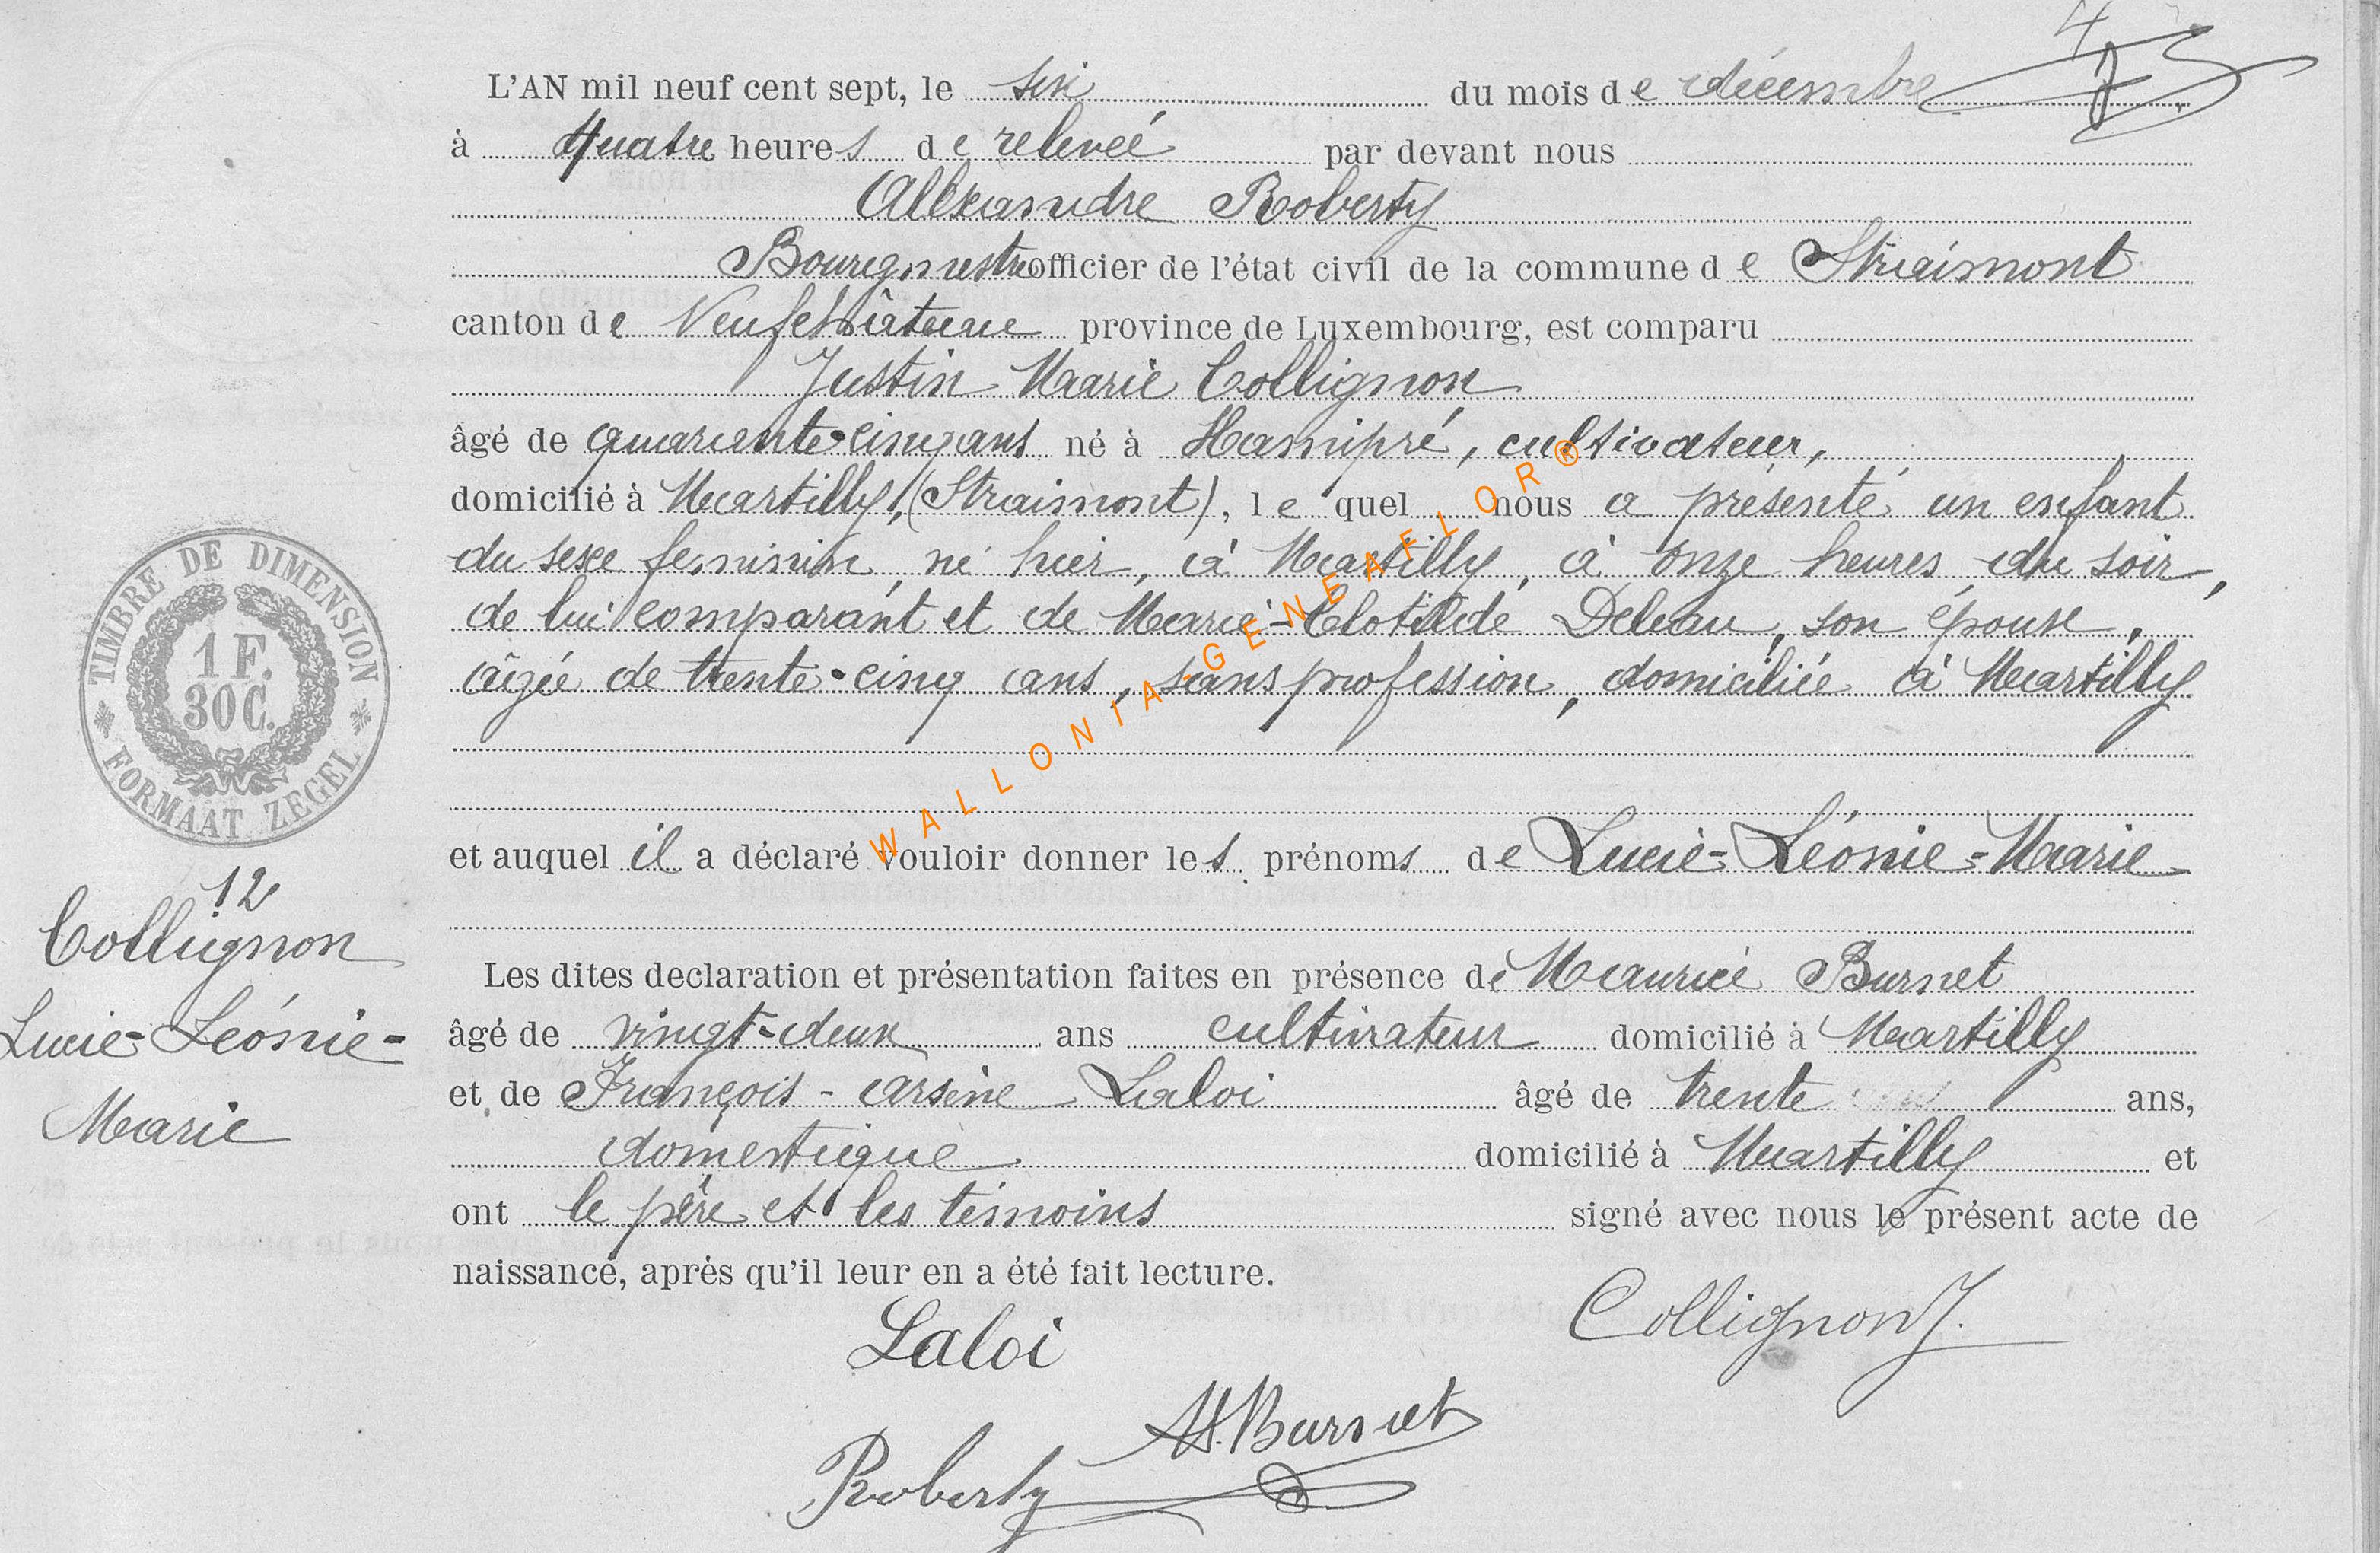 4
L'AN mil neuf cent sept, le six du mois de décembre
à quatre heures de relevée par devant nous
Alexandre Roberty
Bourgmestre officier de l'état civil de la commune de Straimont
canton de Neufchâteau province de Luxembourg, est comparu
Justin Marie Collignon
âgé de quarante-cinq ans né à Hamipré, cultivateur,
domicilié à Martilly, (Straimont), le quel nous a présenté un enfant
du sexe feminin, né hier, à Martilly, à onze heures du soir,
de lui comparant et de Marie-Clotilde Deleau, son épouse,
âgée de trente-cinq ans, sans profession, domiciliée à Martilly
et auquel il a déclaré vouloir donner les prénoms de Lucie-Léonie-Marie
Les dites declaration et présentation faites en présence de Maurice Burnet
âgé de vingt-deux ans cultivateur domicilié à Martilly
et de François-Arsène Laloi âgé de trente ans,
domestique domicilié à Martilly et
ont le père et les témoins signé avec nous le présent acte de
naissance, après qu'il leur en a été fait lecture.
Laloi
Collignon J.
M. Burnet
Roberty
TIMBRE DE DIMENSION
1 F.
30 C.
FORMAAT ZEGEL
12
Collignon
Lucie-Léonie-
Marie
WALLONIA-GENEAFLOR®